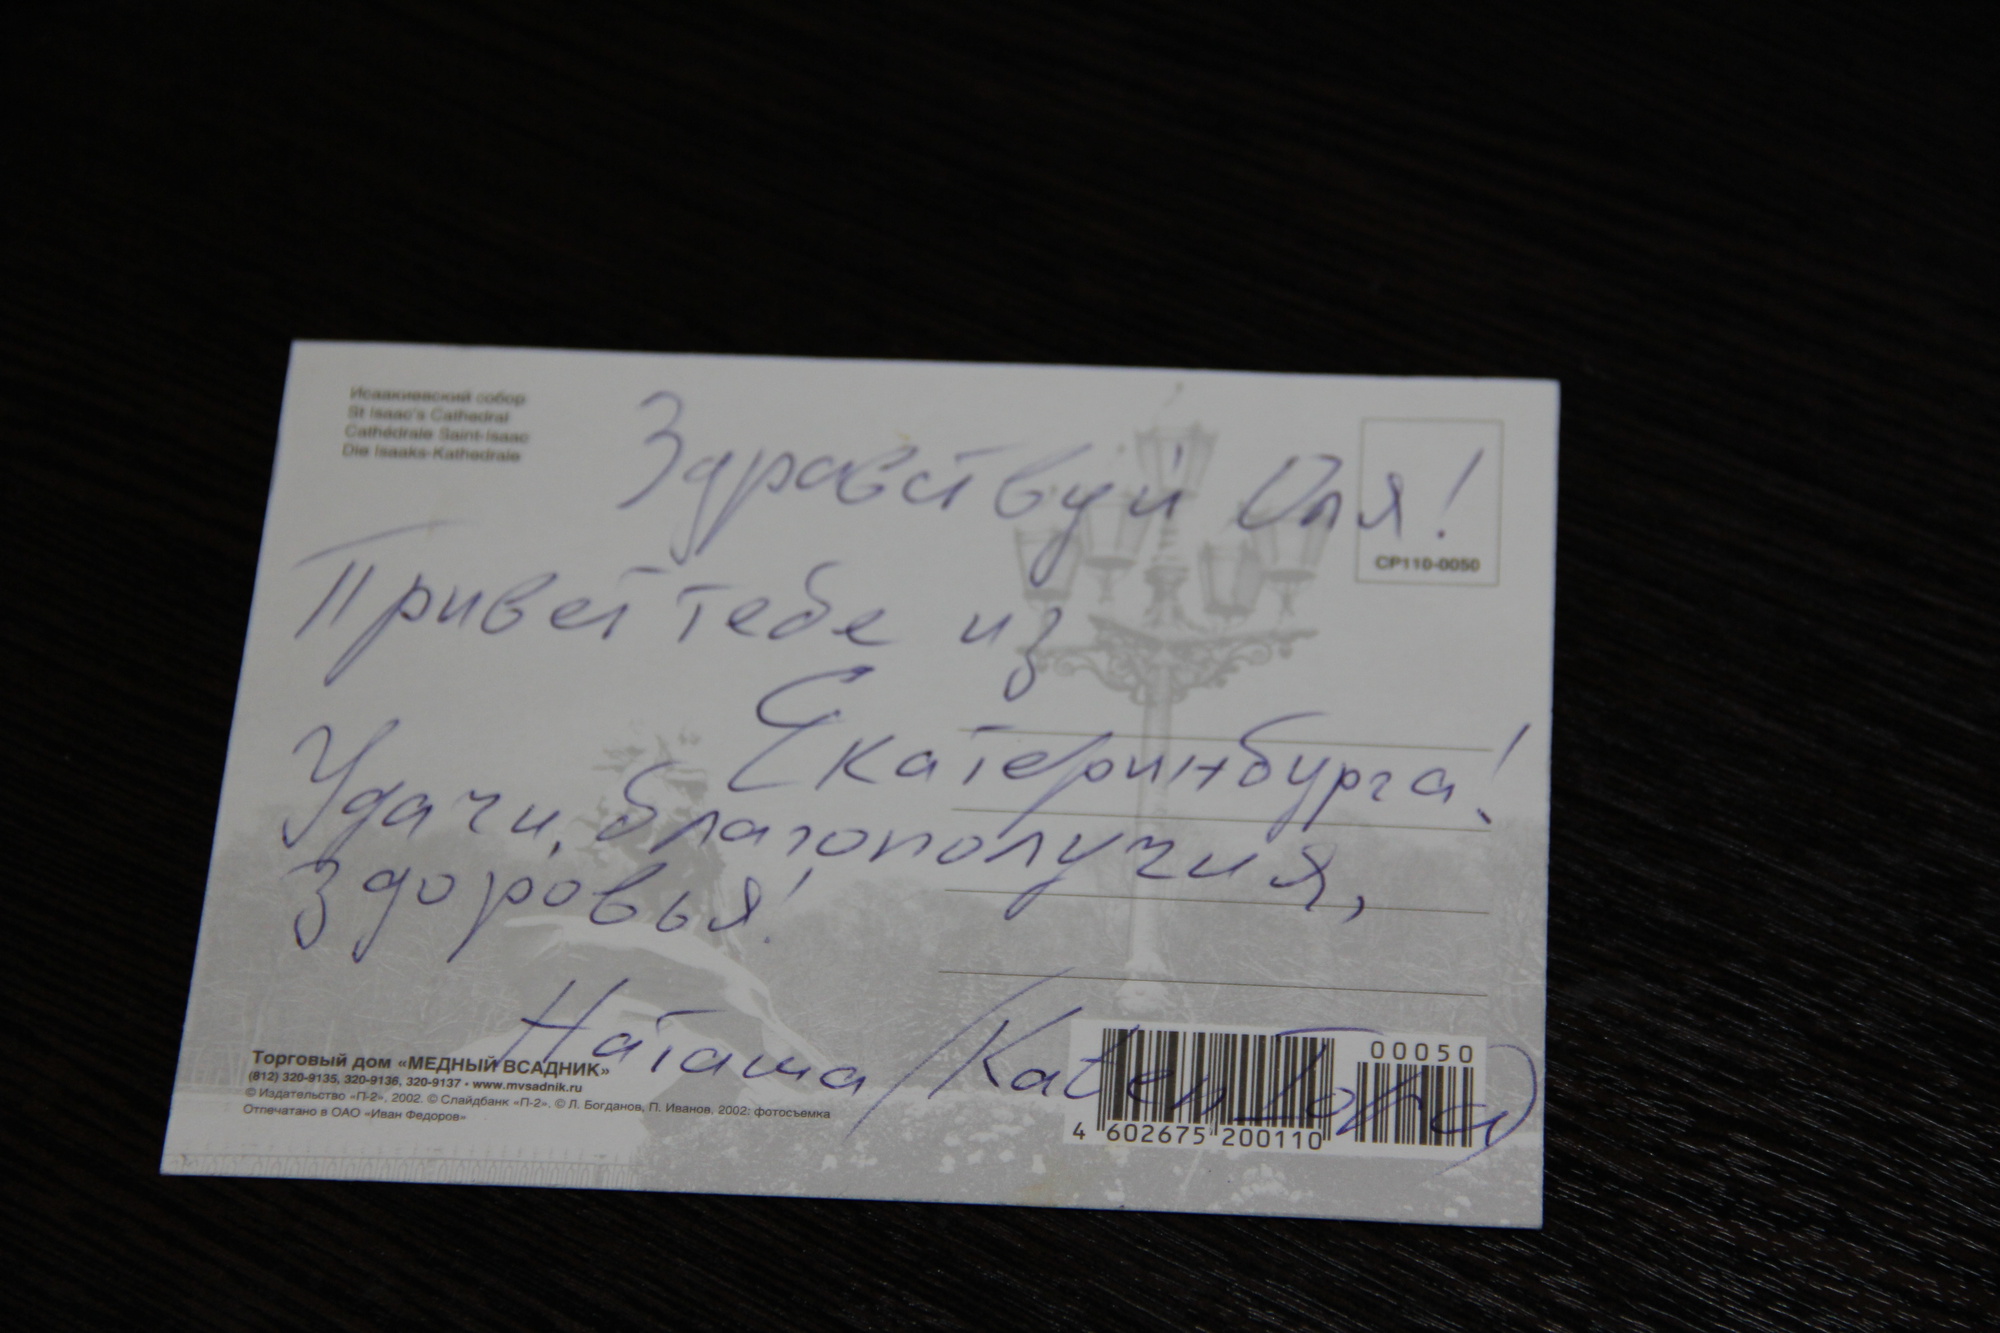 Исаакиевский собор
St Isaac's Cathedral
Cathédrale Saint-Isaac
Die Isaaks-Kathedrale
CP110-0050
Здравствуй Оля!
Привет тебе из
Екатеринбурга!
Удачи, благополучия,
здоровья!
Наташа
Торговый дом «МЕДНЫЙ ВСАДНИК»
(812) 320-9135, 320-9136, 320-9137 • www.mvsadnik.ru
© Издательство «П-2», 2002. © Слайдбанк «П-2». © Л. Богданов, П. Иванов, 2002: фотосъемка
Отпечатано в ОАО «Иван Федоров»
00050
4 602675 200110